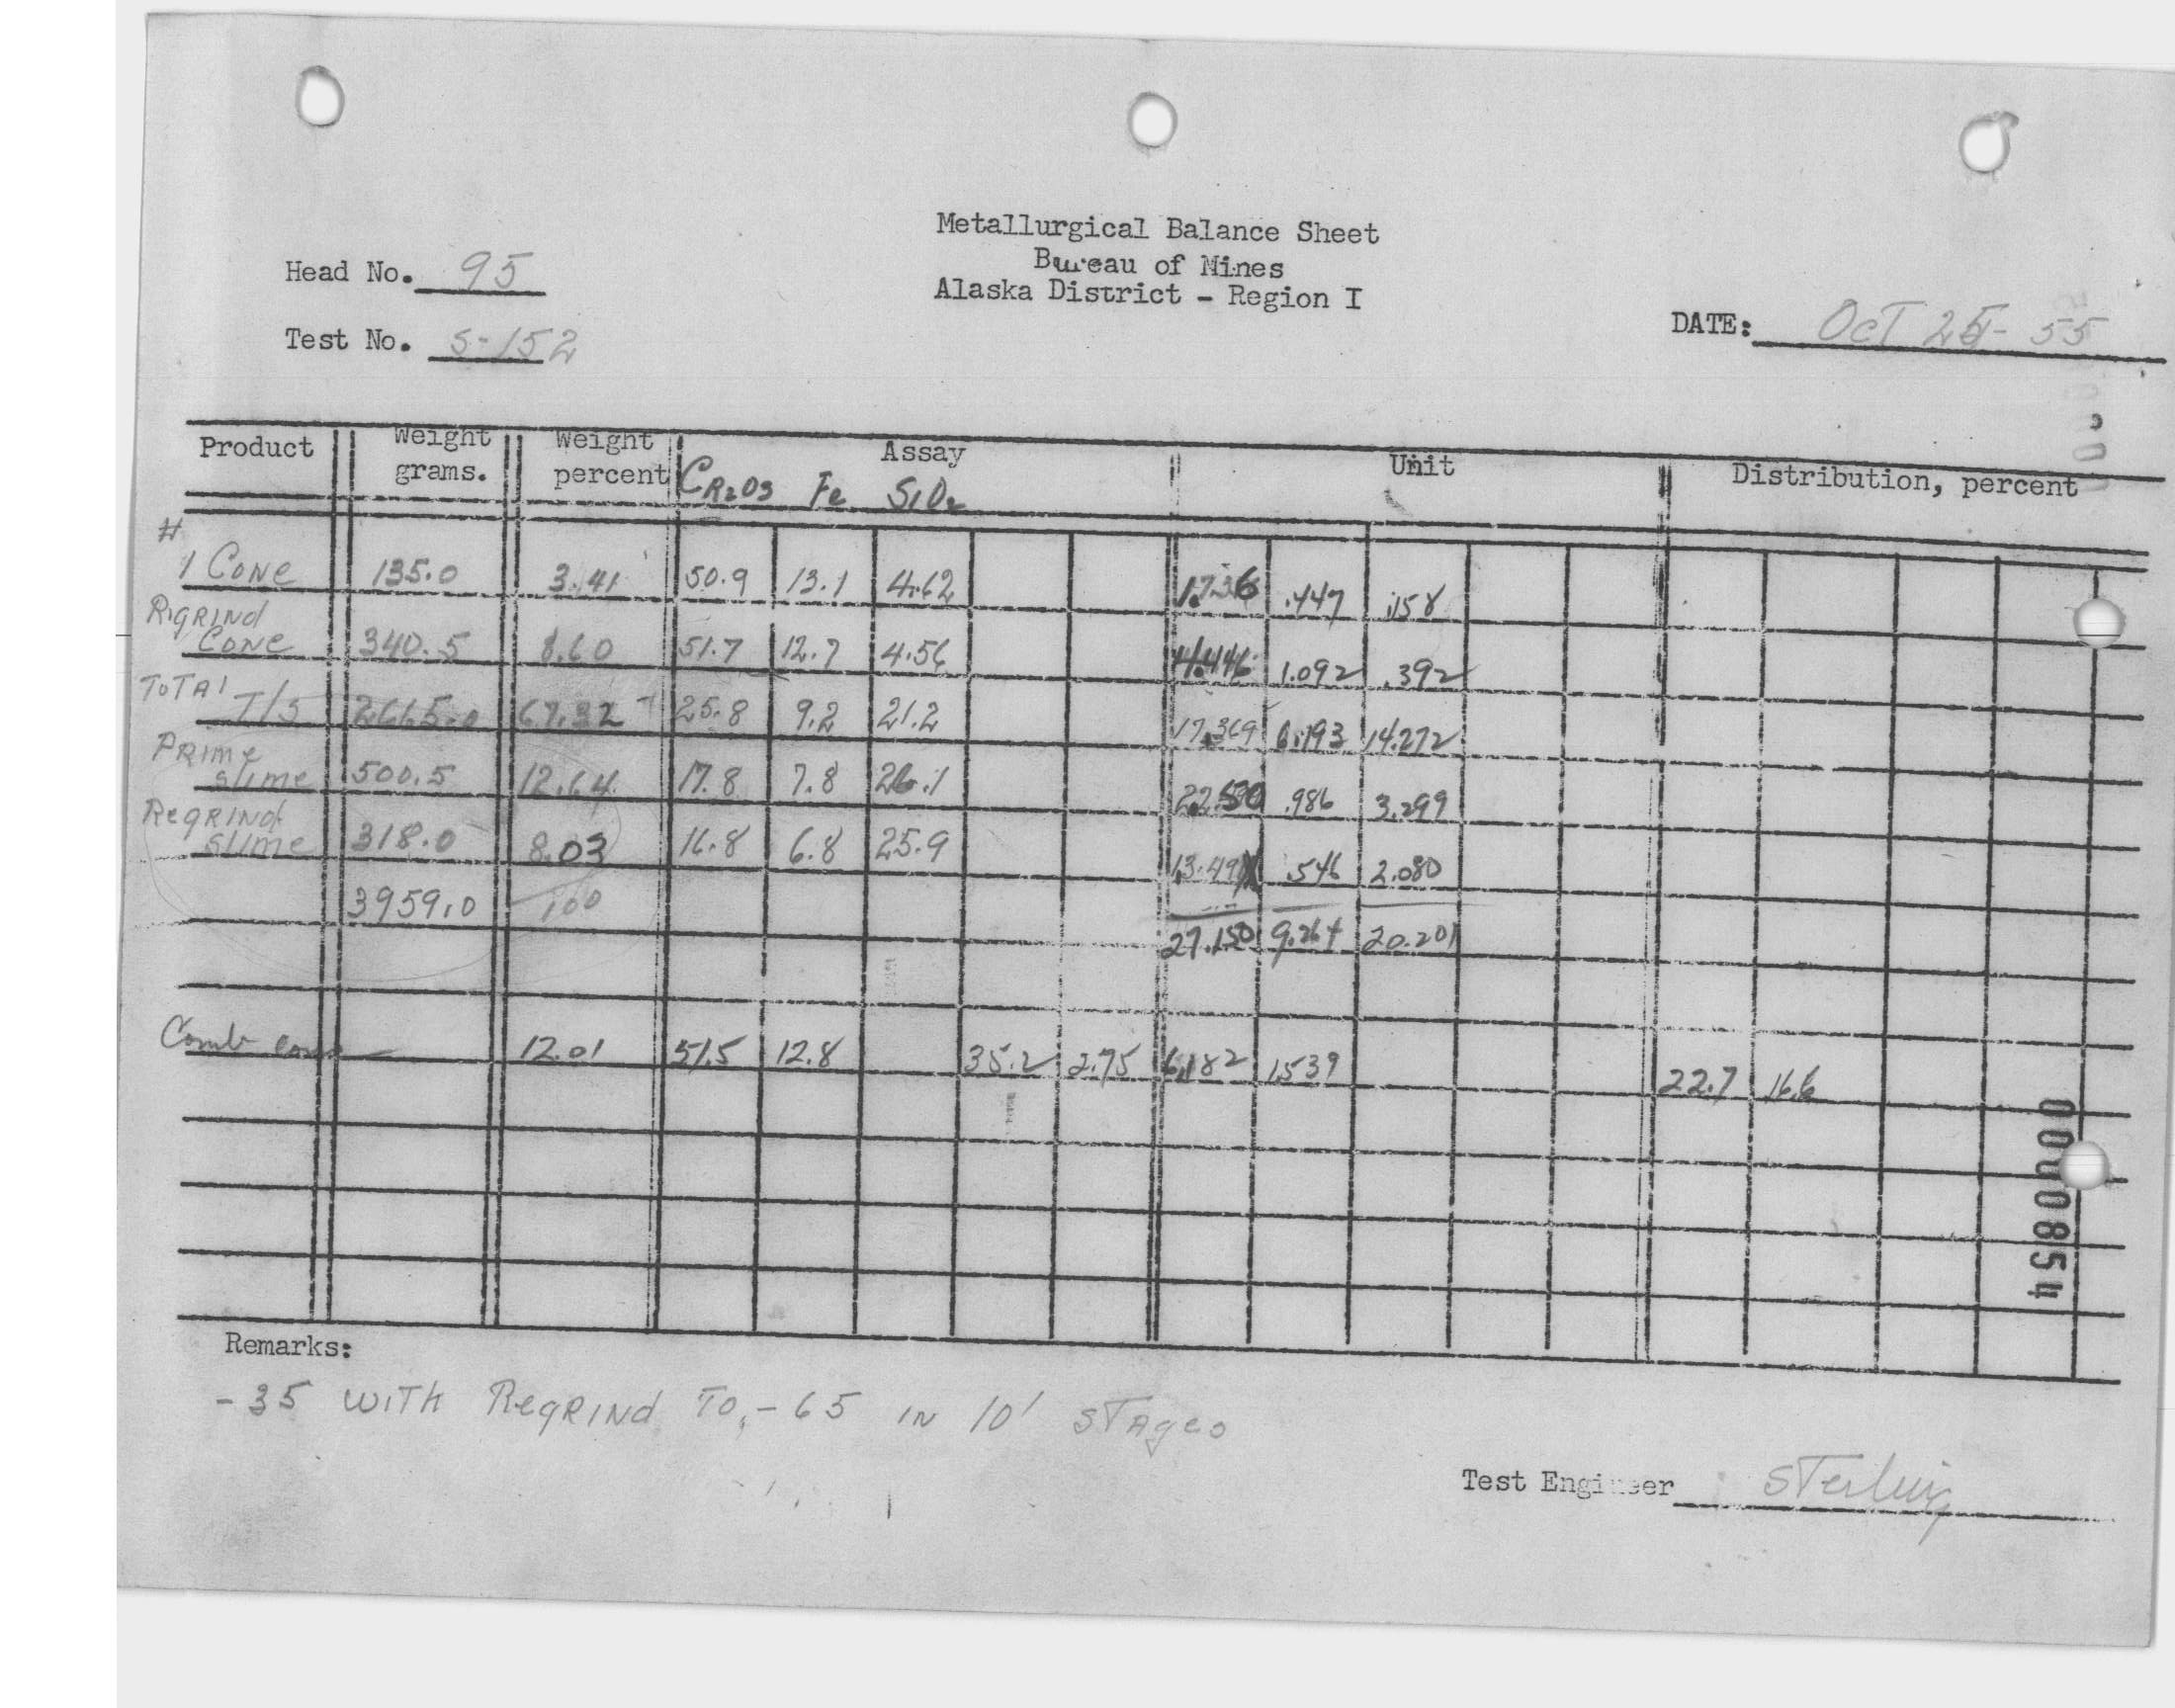 Metallurgical Balance Sheet
Bureau of Mines
Alaska District - Region I
Head No. 95
Test No. S-152
DATE: OCT 25-55
Product Weight grams. Weight percent Assay Unit Distribution, percent
CR2O3 Fe SiO2
# 1 CONC 135.0 3.41 50.9 13.1 4.62 1.736 .447 .158
RegRIND CONC 340.5 8.60 51.7 12.7 4.56 4.446 1.092 .392
TOTAl T/S 2665.0 67.32 25.8 9.2 21.2 17.369 6.193 14.272
PRIMe slime 500.5 12.64 17.8 7.8 26.1 2.250 .986 3.299
RegRIND slime 318.0 8.03 16.8 6.8 25.9 1.349 .546 2.080
3959.0 100 27.150 9.264 20.201
Comb conc — 12.01 51.5 12.8 35.2 2.75 6.182 1.539 22.7 16.6
Remarks:
-35 WITH RegRIND TO -65 IN 10' STAges
Test Engineer Sterling
0000854